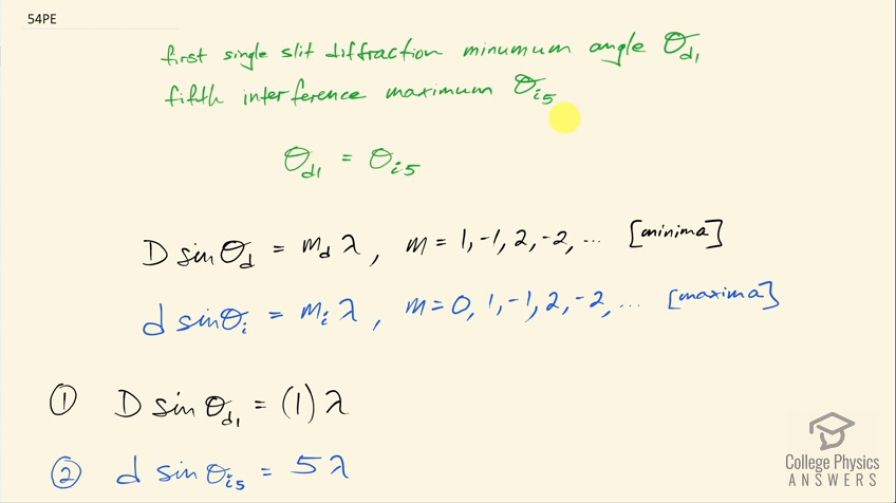 54PE
first single slit diffraction minumum angle θd1
fifth interference maximum θi5
θd1 = θi5
D sinθd = md λ, m = 1, -1, 2, -2, ... [minima]
d sinθi = mi λ, m = 0, 1, -1, 2, -2, ... [maxima]
① D sin θd1 = (1) λ
② d sin θi5 = 5 λ
College Physics
ANSWERS